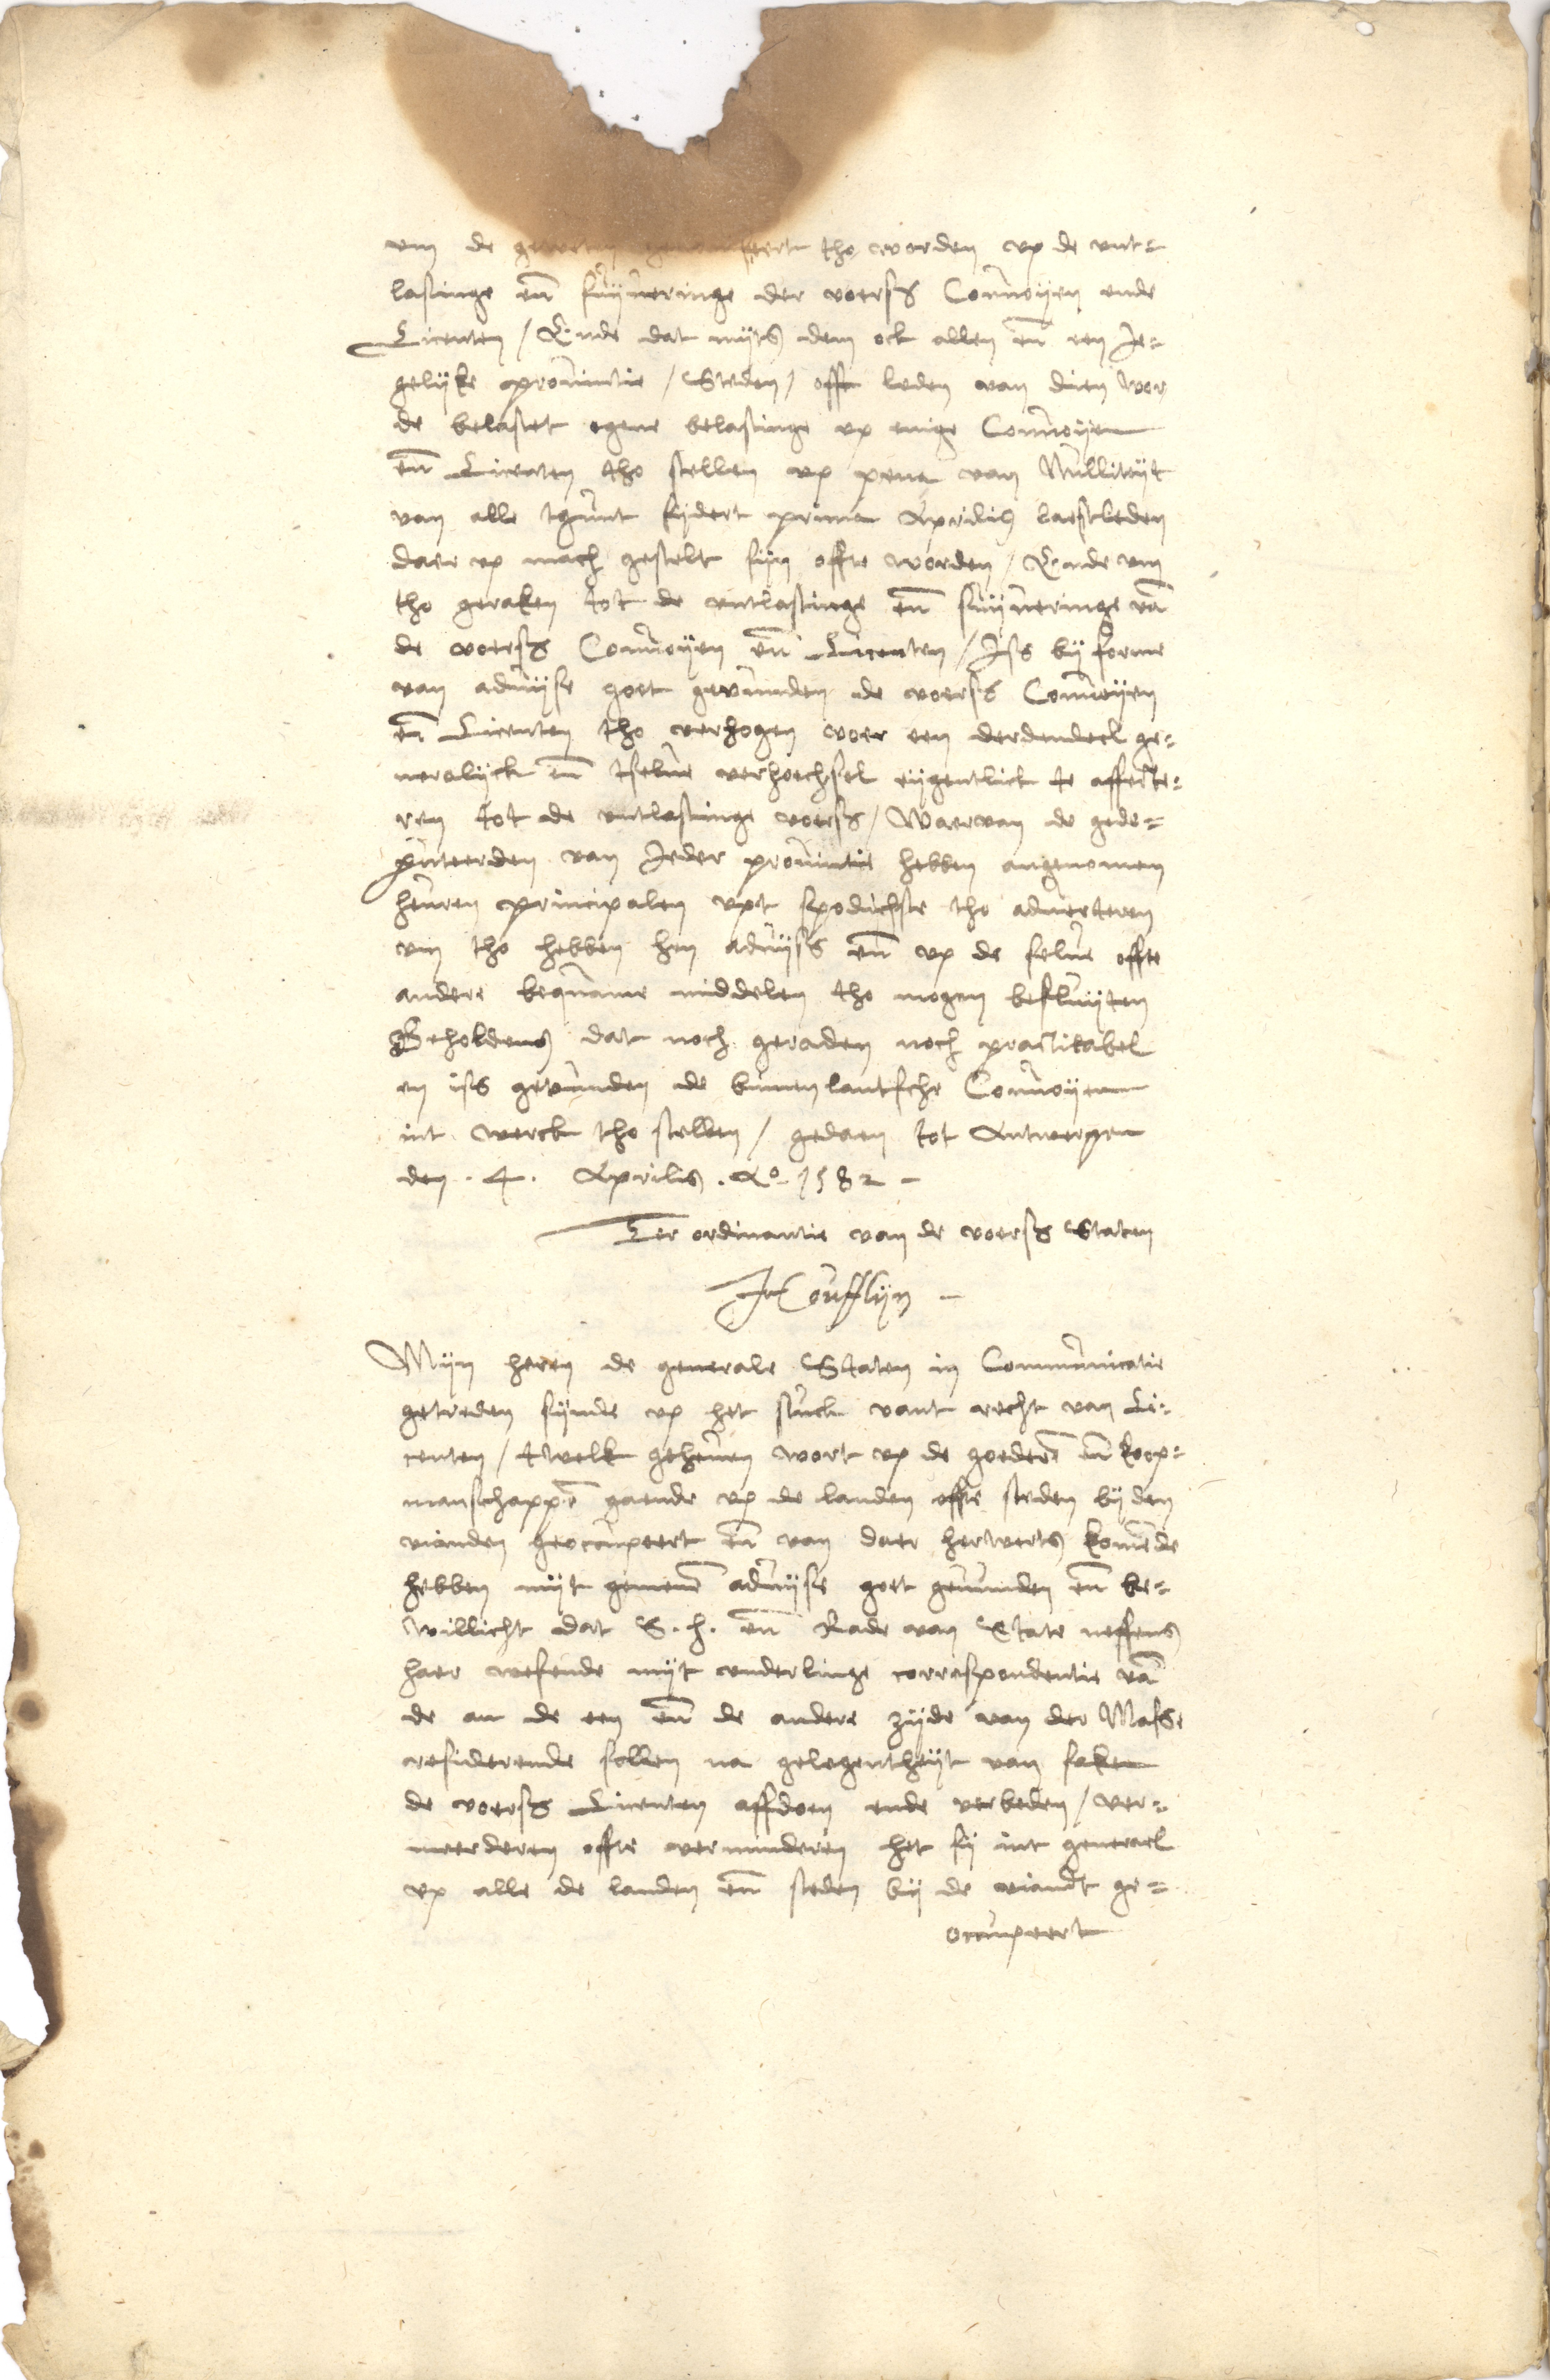 vm de tho worden vp de vnt=
lastinge en̄ suijueringe der voerss Conuoijen ende
Licenten / Ende dat mijts dem ock allen en̄ een Je=
gelijke prouintie / Steden / offte leden van dien wor
de belastet egene belastinge vp enige Conuoijen
en̄ Licenten tho stellen vp pena van Nulliteijt
van alle tgunt sijdert prima Aprilis laestleden
daer vp mach gestelt sijn offte worden / Ende vm
tho geraken tot de vntlastinge en̄ suijueringe vā
de voerss Conuoijen en̄ Licenten / Jss bij forme
van aduijse goet geuunden de voerss Conuoijen
en̄ Licenten tho verhogen voer een derdendeel ge=
neralijck en̄ tselue verhoechsel eijgentlick te affecte=
ren tot de vntlastinge voerss / Waervan de gede=
puteerden van Jeder prouintie hebben angenomen
heuren principalen vpt spodichste tho aduerteren
vm tho hebben hen aduijss en̄ vp de selue offte
andere bequame middelen tho mogen besluijten
Beholdens dat noch geraden noch practikabel
en iss geuunden de binnenlantsche Conuoijen
int werck tho stellen / gedaen tot Antwerpen
den . 4 . Aprilis . Ao 1582 –
Ter ordinantie van de voerss Staten
J Houfflijn –
Mijn heren de generale Staten in Communicatie
getreden sijnde vp het stuck vant recht van Li=
centen / twelk geheuen wort vp de goeder̄ en̄ koop=
manschappē gaende vp de landen offte steden bij den
vianden geoccupeert en̄ van daer herwerts komēde
hebben mijt gemenē aduijse goet geuunden en̄ be=
willicht dat S. h. en̄ Rade van State neffens
haer wesende mijt vnderlinge correspondentie vā
de an de een en̄ de andere zijde van der Masse
residerende sollen na gelegentheijt van saken
de voerss Licenten affdoen ende verbeden / ver=
meerderen offte verminderen het sij int generael
vp alle de landen en̄ steden bij de viandt ge=
occupeert